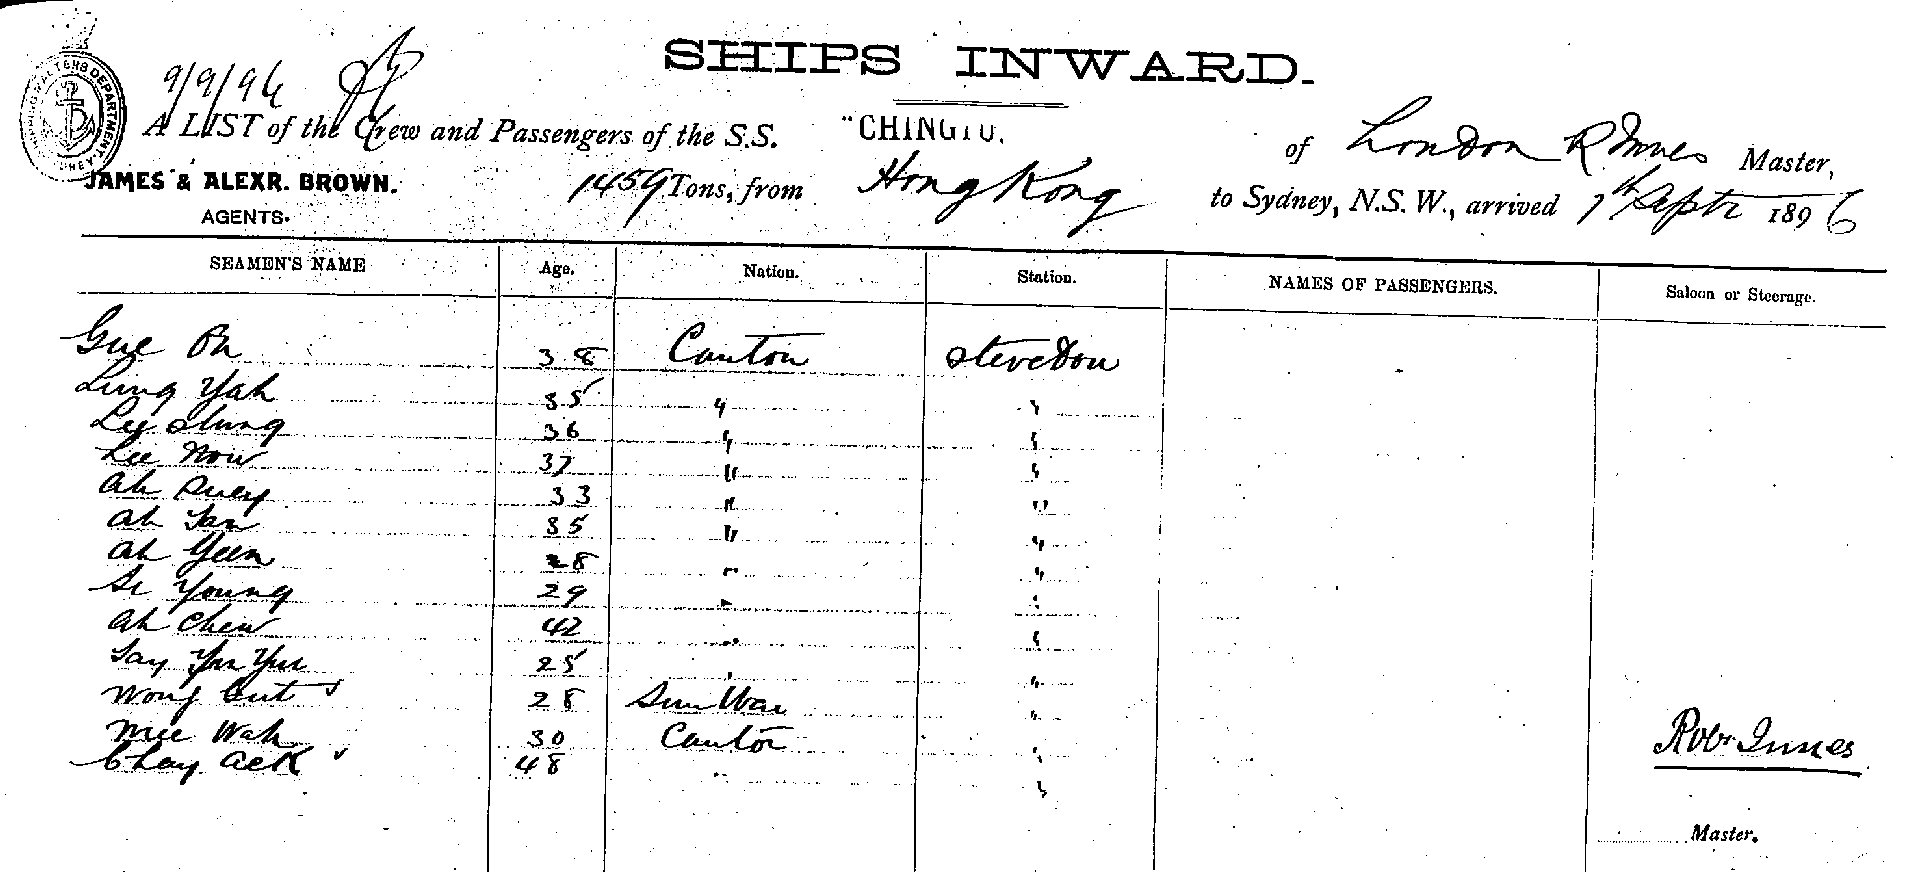 SHIPS INWARD.
9/9/96
A LIST of the Crew and Passengers of the S.S. "CHINGTU. of London R Innes Master,
JAMES & ALEXR. BROWN.
AGENTS.
1459 Tons, from Hong Kong to Sydney, N.S.W., arrived 7th Septr 1896
SEAMEN'S NAME Age. Nation. Station. NAMES OF PASSENGERS. Saloon or Steerage.
Gue On 38 Canton Stevedou
Lung Yah 35 " "
Lee Shung 36 " "
Lee Now 37 " "
Ah Suey 33 " "
Ah Tan 35 " "
Ah Yeen 28 " "
Se Young 29 " "
Ah Chew 42 " "
Say Yu Yu 25 " "
Wong Gut 28 Sun Wai "
Mee Wah 30 Canton "
Chay Ack 48 " "
Robt Innes
Master.